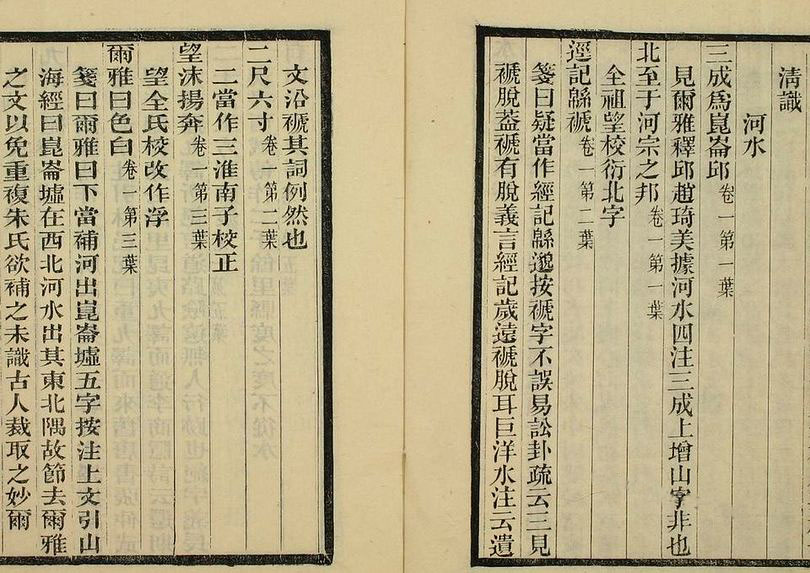 清識
河水
三成爲崑崙邱卷一第一葉
見爾雅釋邱趙琦美據河水四注三成上增山字非也
北至于河宗之邦卷一第一葉
全祖望校衍北字
逕記緜褫卷一第二葉
箋曰疑當作經記緜邈按褫字不誤易訟卦疏云三見
褫脫葢褫有脫義言經記歲遠褫脫耳巨洋水注云遺
文沿褫其詞例然也
二尺六寸卷一第二葉
二當作三淮南子校正
望沫揚奔卷一第三葉
望全氏校改作浮
爾雅曰色白卷一第三葉
箋曰爾雅曰下當補河出崑崙墟五字按注上文引山
海經曰崑崙墟在西北河水出其東北隅故節去爾雅
之文以免重複朱氏欲補之未識古人裁取之妙爾